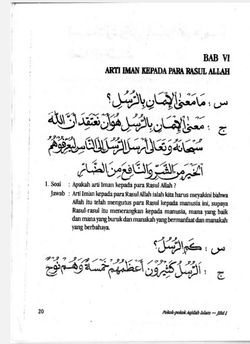 BAB VI
ARTI IMAN KEPADA PARA RASUL ALLAH
س : مَا مَعْنَى الْإِيْمَانِ بِالرُّسُلِ؟
ج : مَعْنَى الْإِيْمَانِ بِالرُّسُلِ هُوَ أَنْ نَعْتَقِدَ أَنَّ اللّٰهَ
سُبْحَانَهُ وَتَعَالَى أَرْسَلَ الرُّسُلَ إِلَى النَّاسِ لِيُعَرِّفُوهُمُ
الْخَيْرَ مِنَ الشَّرِّ وَالنَّافِعَ مِنَ الضَّارِّ
1. Soal : Apakah arti Iman kepada para Rasul Allah ?
Jawab : Arti Iman kepada para Rasul Allah ialah kita harus meyakini bahwa
Allah itu telah mengutus para Rasul kepada manusia, supaya
Rasul-rasul itu menerangkan kepada manusia, mana yang baik
dan mana yang buruk dan manakah yang bermanfaat dan manakah
yang berbahaya.
س : كَمِ الرُّسُلُ؟
ج : الرُّسُلُ كَثِيْرُوْنَ أَعْظَمُهُمْ خَمْسَةٌ وَهُمْ نُوْحٌ
20 Pokok-pokok Aqidah Islam — Jilid I